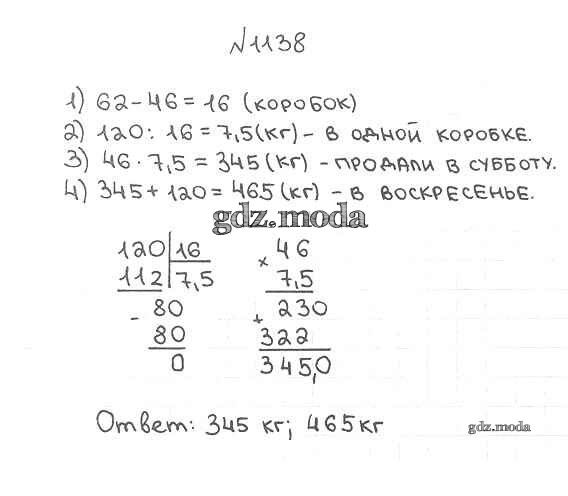 №1138
1) 62-46=16 (КОРОБОК)
2) 120: 16=7,5(кг)- В ОДНОЙ КОРОБКЕ.
3) 46·7,5=345(кг) -ПРОДАЛИ В СУББОТУ.
4) 345+120=465(кг) - В ВОСКРЕСЕНЬЕ.
gdz.moda
120|16
112|7,5
- 80
80
0
46
× 7,5
+ 230
322
345,0
Ответ: 345 кг; 465кг
gdz.moda